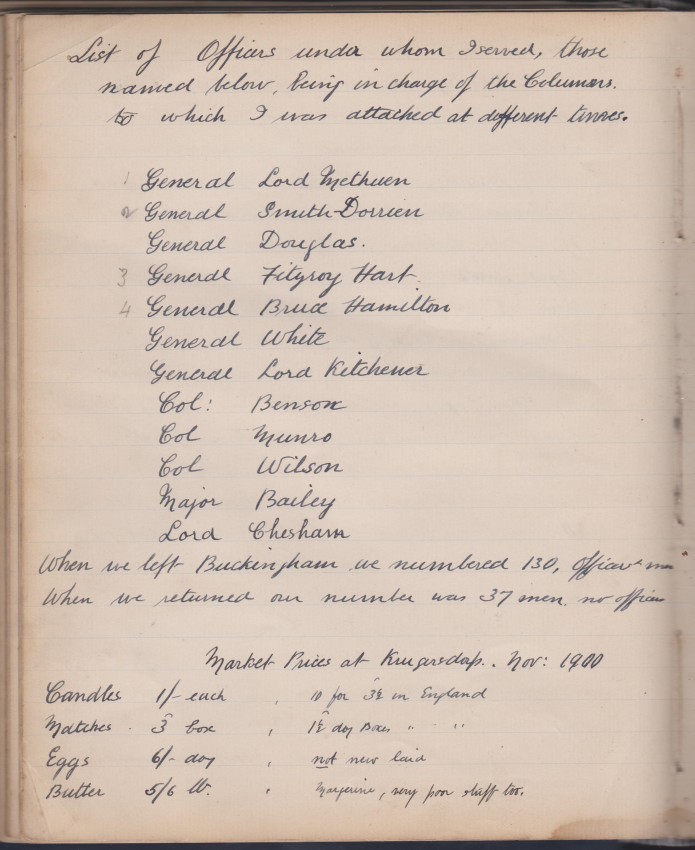 List of Officers under whom I served, those
named below, being in charge of the Columns.
to which I was attached at different times.
1 General Lord Methuen
2 General Smith-Dorrien
General Douglas.
3 General Fitzroy Hart.
4 General Bruce Hamilton
General White
General Lord Kitchener
Col: Benson
Col Munro
Col Wilson
Major Bailey
Lord Chesham
When we left Buckingham we numbered 130, officers & men
When we returned our number was 37 men. no officers
Market Prices at Krugersdorp. Nov: 1900
Candles 1/- each , 10 for 3½ in England
Matches . 3 box , 1½ doz Boxes " "
Eggs 6/- doz , not new laid
Butter 5/6 lb. , Margerine, very poor stuff too.